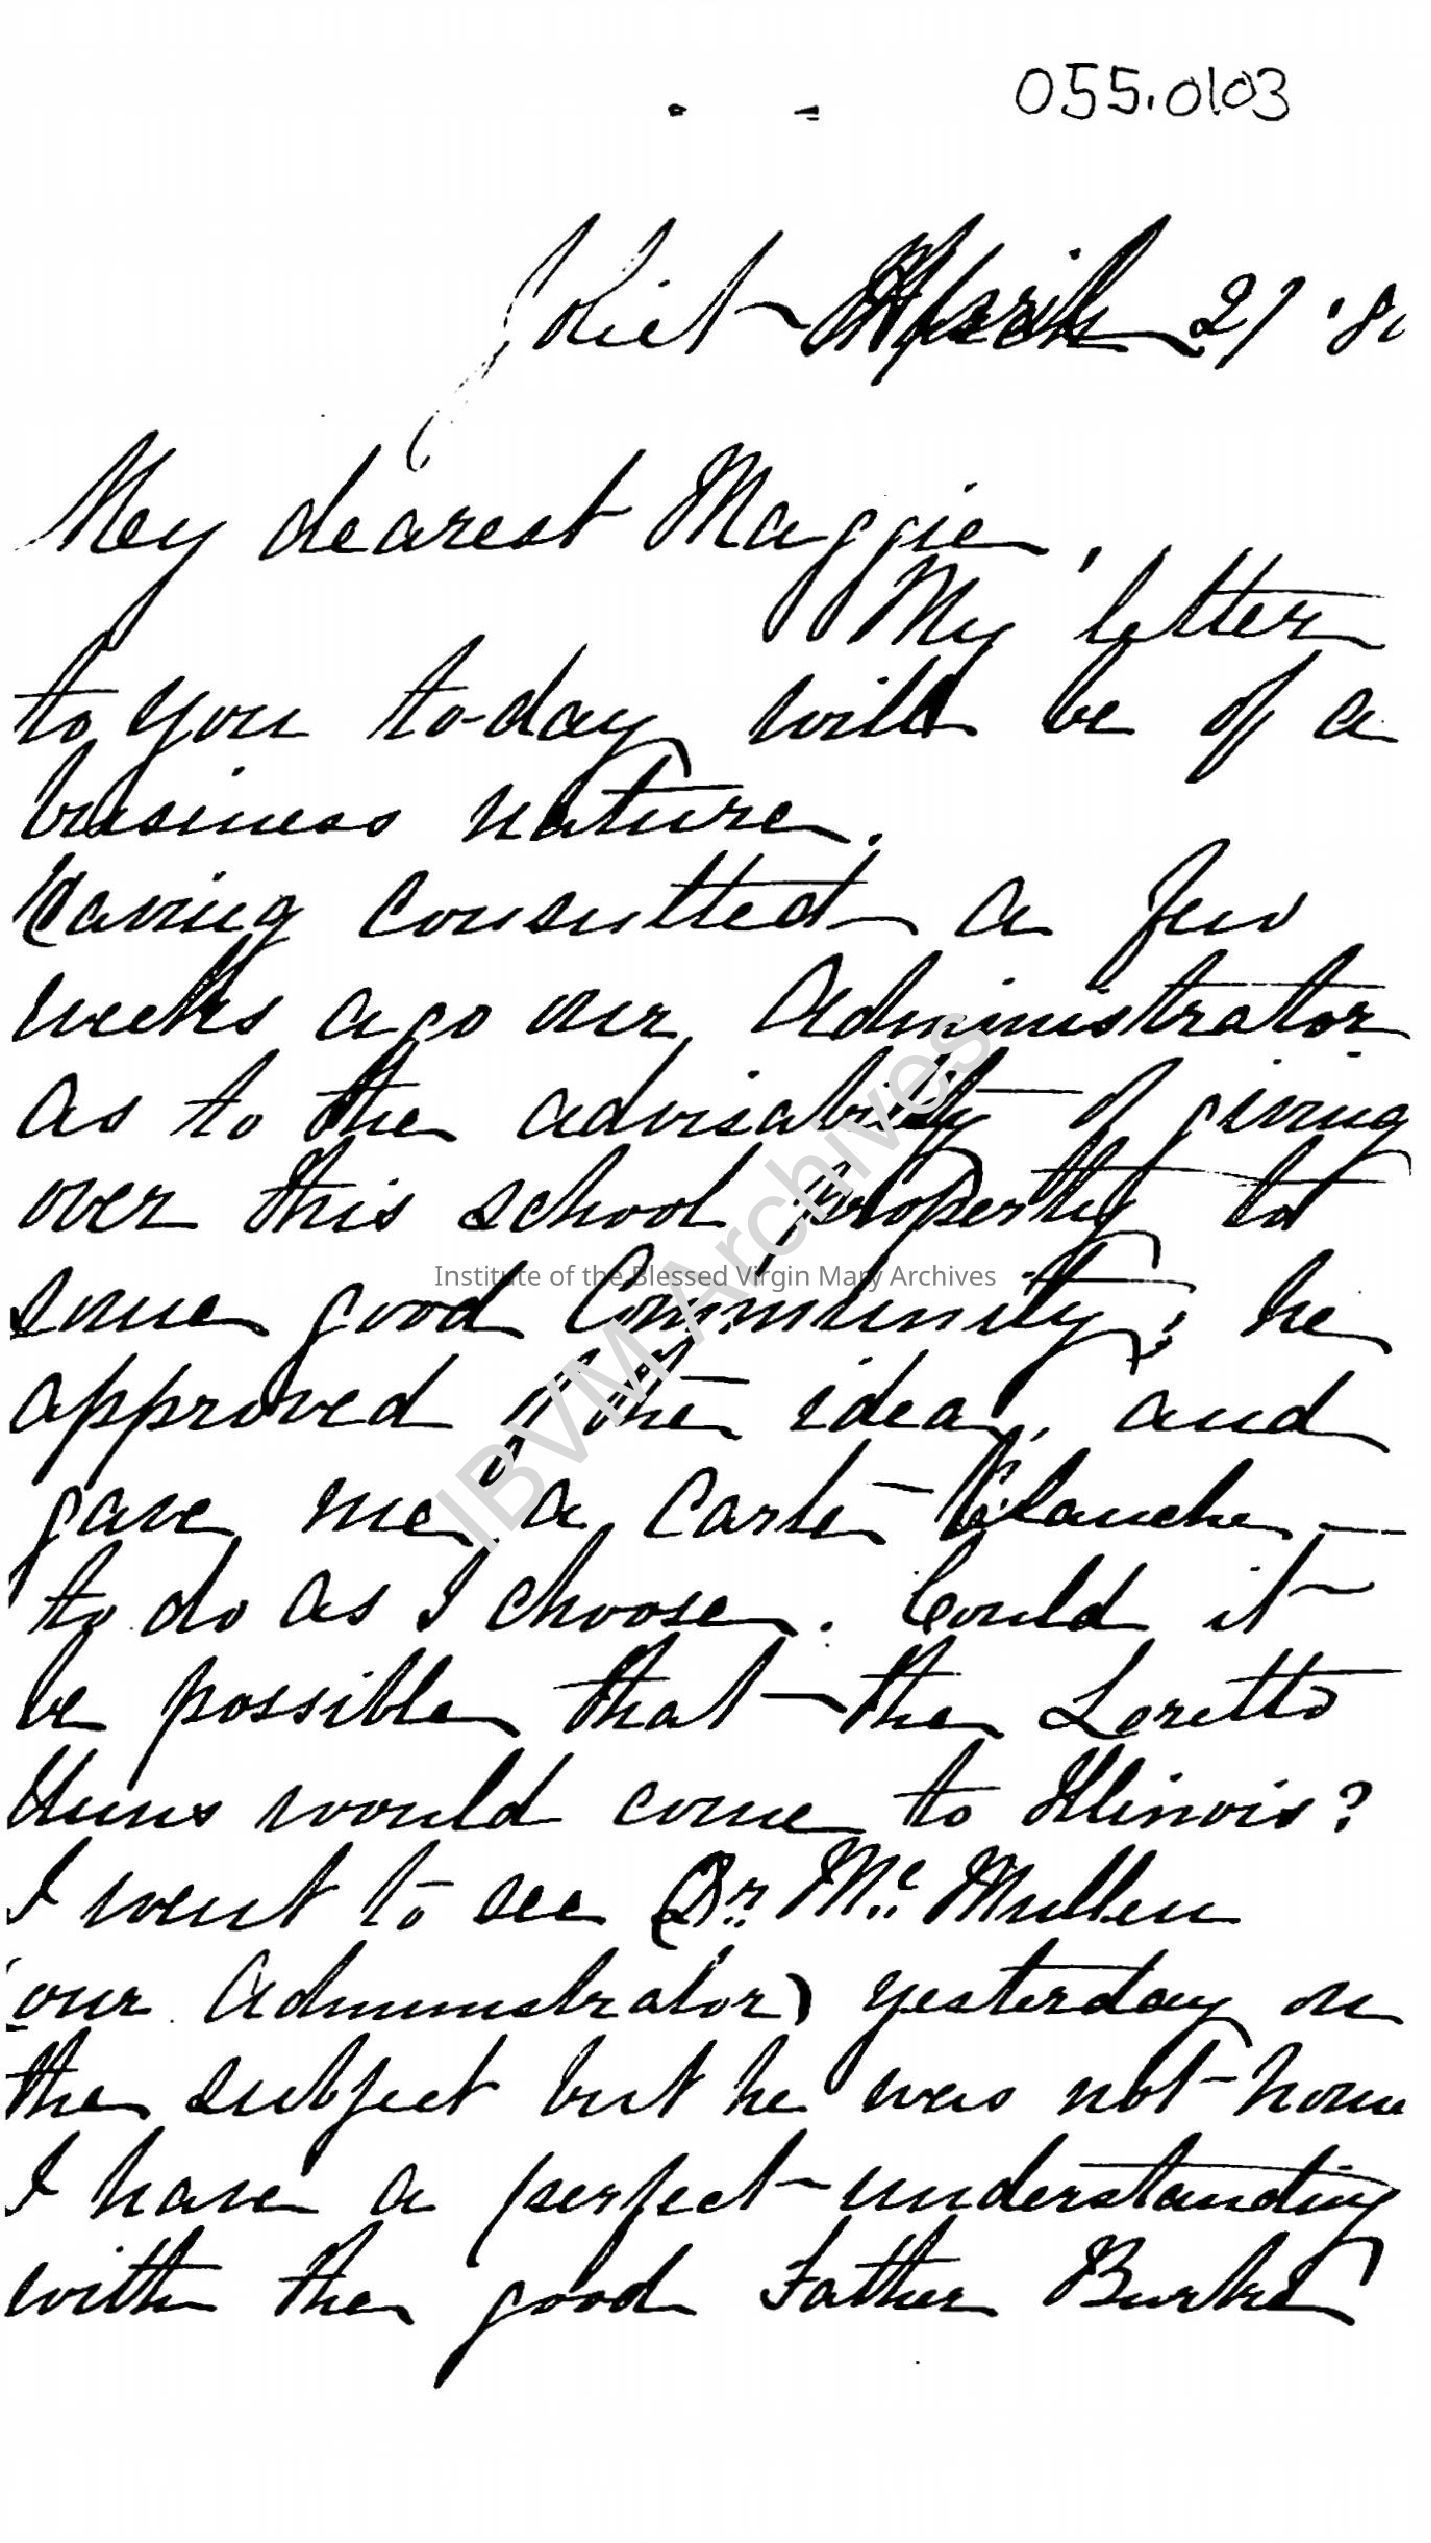 055.0103
Joliet April 27 '80
My dearest Maggie,
My letter
to you to-day will be of a
business nature.
Having consulted a few
weeks ago our Administrator
as to the advisability of giving
over this school property to
some good Community; he
approved of the idea, and
gave me a Carte Blanche —
to do as I choose. Could it
be possible that the Loretto
Nuns would come to Illinois?
I went to see Dr. Mc. Mullen
(our Administrator) yesterday on
the subject but he was not home
I have a perfect understanding
with the good Father Burke
IBVM Archives
Institute of the Blessed Virgin Mary Archives